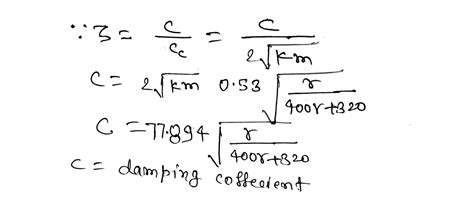 ∵ ζ = C/Cc = C/2√km
C = 2√km 0.53 √r/400r+320
C = 77.894 √r/400r+320
C = damping coffecient